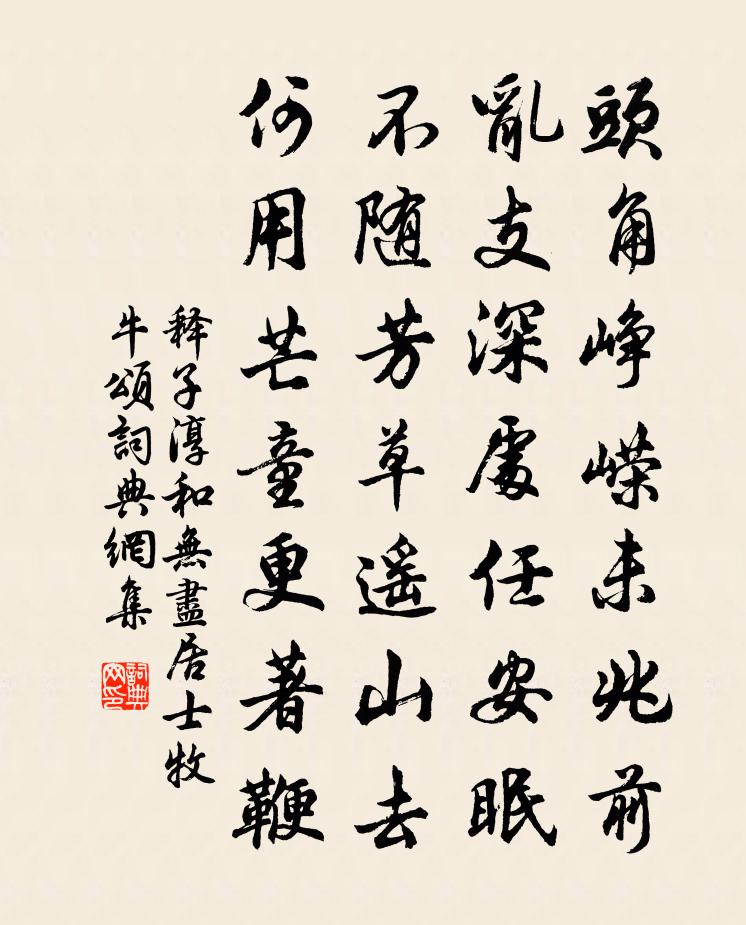 頭角峥嵘未兆前
亂支深處任安眠
不随芳草遥山去
何用芒童更著鞭
释子淳和無盡居士牧
牛頌詞典網集
詞典網印